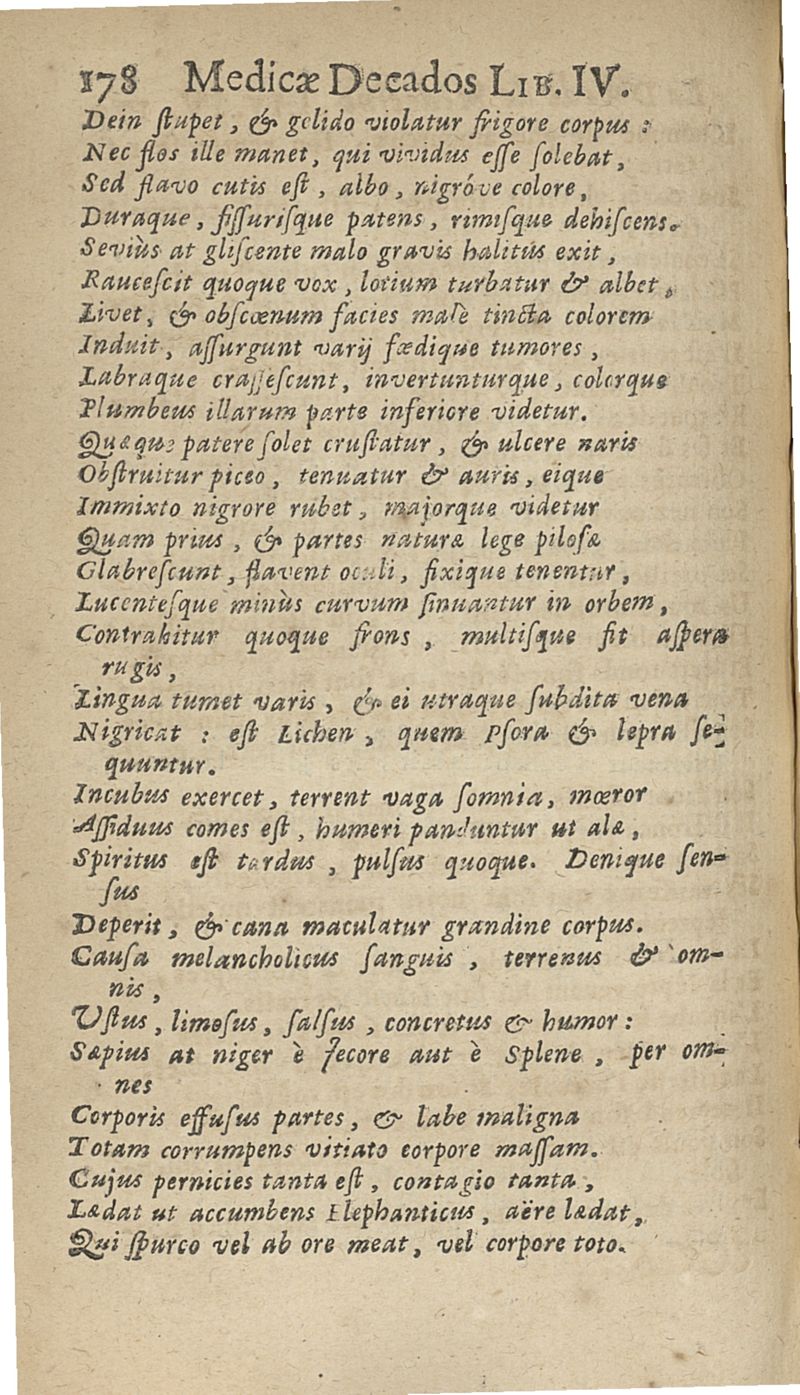 178 Medicæ Decados LIB. IV.
Dein ſtupet, & gelido violatur frigore corpus:
Nec flos ille manet, qui vividus eſſe ſolebat,
Sed flavo cutis eſt, albo, nigróve colore,
Duraque, fiſſuriſque patens, rimiſque dehiſcens.
Seviùs at gliſcente malo gravis halitus exit,
Raucefcit quoque vox, lotium turbatur & albet,
Livet, & obſcœnum facies male tincta colorem
Induit, aſſurgunt varij fœdique tumores,
Labraque craſſeſcunt, invertunturque, colorque
Plumbeus illarum parte inferiore videtur.
Quæque patere ſolet cruſtatur, & ulcere naris
Obſtruitur piceo, tenuatur & auris, eique
Immixto nigrore rubet, majorque videtur
Quam prius, & partes naturæ lege piloſæ
Glabreſcunt, flavent oculi, fixique tenentur,
Lucenteſque minùs curvum ſinuantur in orbem,
Contrahitur quoque frons, multiſque fit aſpera
rugis,
Lingua tumet varis, & ei utraque ſubdita vena
Nigricat: eſt Lichen, quem Pſora & lepra ſe-
quuntur.
Incubus exercet, terrent vaga ſomnia, mœror
Aſſiduus comes eſt, humeri panduntur ut alæ,
Spiritus eſt tardus, pulſus quoque. Denique ſen-
ſus
Deperit, & cana maculatur grandine corpus.
Cauſa melancholicus ſanguis, terrenus & om-
nis,
Uſtus, limoſus, ſalſus, concretus & humor:
Sæpius at niger è Jecore aut è Splene, per om-
nes
Corporis effuſus partes, & labe maligna
Totam corrumpens vitiato eorpore maſſam.
Cujus pernicies tanta eſt, contagio tanta,
Lædat ut accumbens Elephanticus, aëre lædat,
Qui ſpurco vel ab ore meat, vel corpore toto.